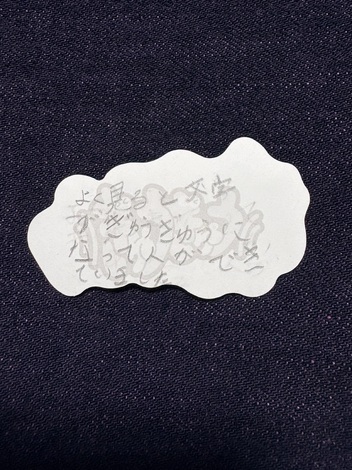 よく見ると文字
がぎゅうぎゅうに
なって人ができ
ていました